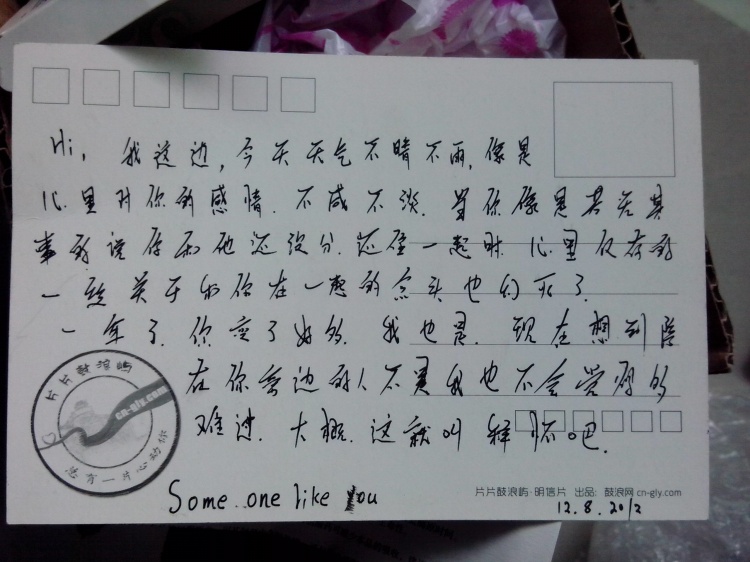 Hi, 我这边,今天天气不晴不雨,像是
心里对你的感情.不咸不淡.当你像是若无其
事的说你和他还没分.还在一起时.心里仅存的
一点关于和你在一起的念头也幻灭了.
一年了.你变了好多.我也是.现在想到陪
在你旁边的人不是我也不会觉得的
难过.大概.这就叫释怀吧.
Some one like you
片片鼓浪屿
cn-gly.com
总有一片心动你
片片鼓浪屿·明信片 出品:鼓浪网 cn-gly.com
12.8.2012